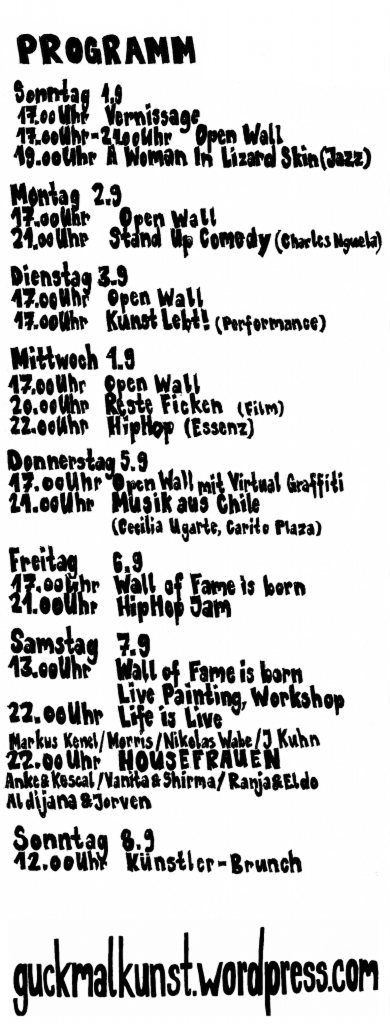 PROGRAMM
Sonntag 1.9
17.00Uhr Vernissage
17.00Uhr-21.00Uhr Open Wall
19.00Uhr A Woman In Lizard Skin (Jazz)
Montag 2.9
17.00Uhr Open Wall
21.00Uhr Stand Up Comedy (Charles Nguela)
Dienstag 3.9
17.00Uhr Open Wall
17.00Uhr Kunst Lebt! (Performance)
Mittwoch 4.9
17.00Uhr Open Wall
20.00Uhr Reste Ficken (Film)
22.00Uhr HipHop (Essenz)
Donnerstag 5.9
17.00Uhr Open Wall mit Virtual Graffiti
21.00Uhr Musik aus Chile
(Cecilia Ugarte, Carito Plaza)
Freitag 6.9
17.00Uhr Wall of Fame is born
21.00Uhr HipHop Jam
Samstag 7.9
13.00Uhr Wall of Fame is born
Live Painting, Workshop
22.00Uhr Life is Live
Markus Kenel/Morris/Nikolas Wabe/J Kuhn
22.00Uhr HOUSEFRAUEN
Anke&Kescal/Vanita&Shirma/Ranja&Eldo
Aldijana&Jorven
Sonntag 8.9
12.00Uhr Künstler-Brunch
guckmalkunst.wordpress.com